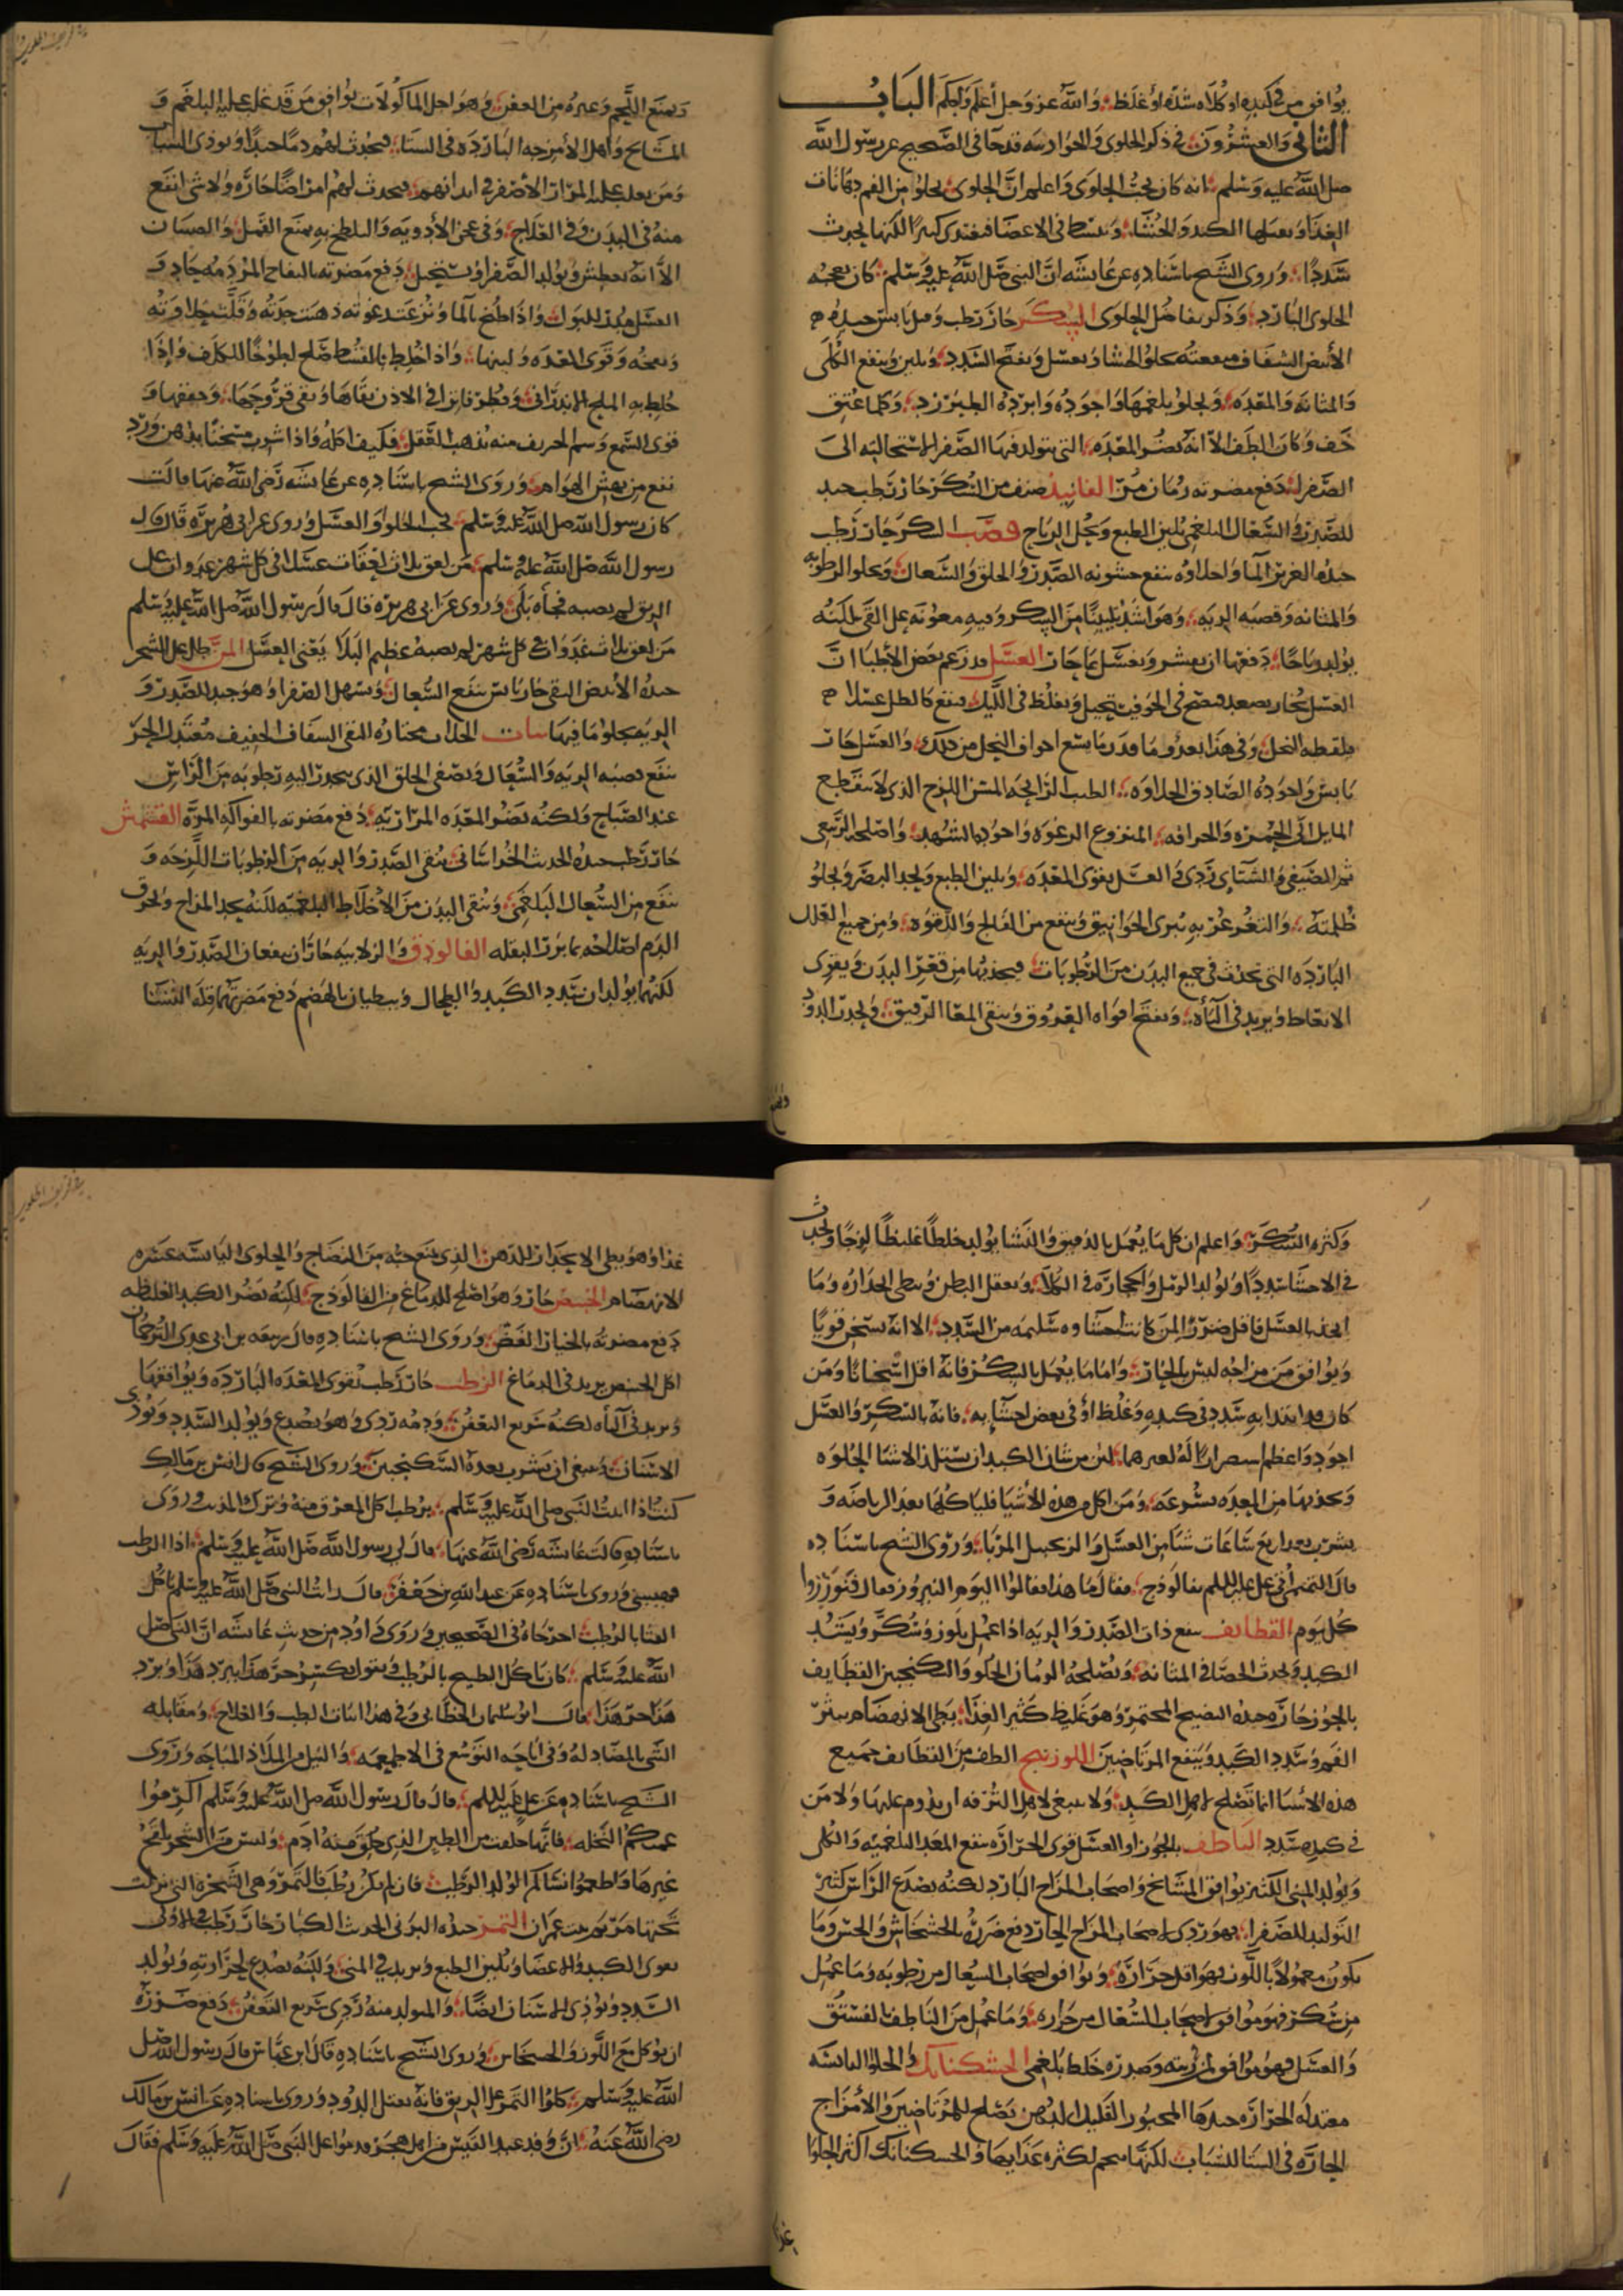 يوافق من في كبده او كلاه شدة او غلظ والله عز وجل أعلم وأحكم الباب
الثاني والعشرون في ذكر الحلوى والحوارسه قد جا في الصحيح عن رسول الله
صلى الله عليه وسلم انه كان يحب الحلوى واعلم ان الحلوى يحلو من الفم
الغذا الكبد والحشا في الاعضا فيغتذى كثيرا لكنها يحدث
سددا وروى الشيح باسناده عن عايشه ان النبي صلى الله عليه وسلم كان يعجبه
الحلوى البارد وذكر الحلوى السكر حار رطب وميل يابس جيده
الأبيض الشفاف منفعته يجلو الحشا ويغسل ويفتح السدد ويلين وينفع الكلى
والمثانه والمعده ويجلو بلغمها واجوده وابرده الطبرزد وكلما عتق
خف وكان الطف الا انه يضر المعده التي يتولد فيها الصفرا لاستحالته الى
الصفرا دفع مضرته رمان مز الفانيد صنف من السكر حار رطب جيد
للصدر والسعال البلغمي يلين الطبع ويحلل الرياح قصب السكر حار رطب
جيده الغزير الما والحلاوه ينفع خشونه الصدر والحلق والسعال ويجلو الرطوبه
والمثانه وقصبه الريه وهو اشد تليينا من السكر وفيه معونه على القي لكنه
يولد رياحا دفعها ان يقشر ويغسل بما حار العسل قد زعم بعض الأطبا ان
العسل بخار يصعد فينضج في الجو فيستحيل ويغلظ في الليل فيقع كالطل عسلا
فيلقطه النحل وفي هذا بعد وما من اجواف النحل من ذلك والعسل حار
يابس واجوده الصادق الحلاوه الطيب الرايحه المتين اللزج الذي لا ينقطع
المايل الى الحمره والحرافه المنزوع الرغوه واجوده الشهد واصلحه الربيعي
ثم الصيفي والشتاي ردي والعسل يقوي المعده ويلين الطبع ويحد البصر ويجلو
ظلمته والتغرغر به يبرى الخوانيق وينفع من الفالج واللقوه ومن جميع العلل
البارده التي تحدث في جميع البدن من الرطوبات فيجذبها من قعر البدن ويقوي
الانعاظ ويزيد في الباه ويفتح افواه العروق وينقي المعا الرقيق ويحدر الدود
ويمنع اللحم وغيره من العفن وهو اجل الماكولات يوافق من قد غلب عليه البلغم و
المشايخ واهل الأمزجه البارده في الشتا فيحدث لهم دما جيدا ويوذي الشباب
ومن يغلب عليه المرار الأصفر في ابدانهم فيحدث لهم امراضا حاره ولا شي انفع
منه في البدن وفي العلاج وفي عجن الأدويه والتلطخ به يمنع القمل والصيبان
الا انه يعطش ويولد الصفرا ويستحيل دفع مضرته بالتفاح المز
العسل للبول واذا طبخ بالما ونزعت رغوته ذهبت حدته وقلت حلاوته
ونفخه وقوى المعده ولينها واذا خلط بالقسط صلح لطوخا للكلف واذا
خلط به الملح الاندراني وقطر فاترا في الاذن نقاها وبقى قروحها وجففها و
قوى السمع وسم الحريف منه يذهب العقل فكيف اكله واذا شرب مسخنا بدهن ورد
نفع من نهش الهوام وروى الشيح باسناده عن عايشه رضي الله عنها قالت
كان رسول الله صلى الله عليه وسلم يحب الحلوا والعسل وروى عن ابي هريره قال قال
رسول الله صلى الله عليه وسلم من لعق ثلاث لعقات عسلا في كل شهر غدوات على
الريق لم يصبه فجأه بلى وروى عن ابي هريره قال قال رسول الله صلى الله عليه وسلم
من لعق ثلاث غدوات في كل شهر لم يصبه عظيم البلا يعني العسل المن طل على الشجر
جيده الأبيض النقي حار يابس ينفع السعال ويسهل الصفرا وهو جيد للصدر و
الريه يجلو ما فيها الحلاب مختاره النقي الشفاف الخفيف معتدل الحر
ينفع قصبه الريه والسعال ويصفي الحلق الذي ينحدر اليه رطوبه من الرأس
عند الصباح ولكنه يضر المعده المراريه دفع مضرته بالفواكه المزه القشمش
حار رطب جيده الحديث الخراساني ينقي الصدر والريه من الرطوبات اللزجه و
ينفع من السعال البلغمي وينقي البدن من الأخلاط البلغميه لكنه يحد المزاج ويحرق
الدم اصلاحه بما بزر البقله الفالوذق والزلابيه حاران ينفعان الصدر والريه
لكنهما يولدان سدد الكبد والطحال ويبطيان بالهضم دفع مضرتهما قله النشا
وكثره السكر واعلم ان كل ما يعمل بالدقيق والنشا يولد خلطا غليظا لزجا ويحدث
في الاحشا سددا ويولد الرمل والحجاره في الكلا ويعقل البطن ويبطي انحداره وما
اتخذ بالعسل فاقل ضررا لمن كانت احشاوه سليمه من السدد الا انه يسخن قويا
ويوافق من مزاجه ليس بالحار واما ما يعمل بالسكر فانه اقل اسخانا ومن
كان به سدد في كبده وغلظ أو في بعض احشايه فانه بالسكر والعسل
اجود واعظم لان من شان الكبد ان تستلذ الاشيا الحلوه
وتجذبها من المعده بسرعه ومن اكل من هذه الأشيا فلياكلها بعد الرياضه و
يشرب بعد اربع ساعات شيا من العسل والزنجبيل المربا وروى الشيح باسناده
قال اتى علي عليه السلم بفالوذج فقال ما هذا فقالوا اليوم النيروز فقال فنوروا
كل يوم القطايف ينفع ذات الصدر والريه اذا عمل بلوز وسكر ويسد
الكبد ويحدث الحصا في المثانه ويصلحه الرمان الحلو والسكنجبين القطايف
بالجوز حاره جيده النضيج المختمر وهو غليظ كثير الغذا بطي الانهضام يبثر
الفم ويسدد الكبد وينفع المرتاضين اللوزينج الطف من القطايف جميع
هذه الاشيا انما تصلح لاهل الكبد ولا ينبغي لاهل الترفه ان يدوم عليها ولا من
في كبده سدد الناطف بالجوز او العسل قوي الحراره ينفع المعد البلغميه والكلى
ويولد المني الكثير يوافق المشايخ واصحاب المزاج البارد لكنه يصدع الراس كثير
التوليد للصفرا فهو ردي لاصحاب المزاج الحار دفع ضرره بالخشخاش والخس وما
يكون معمولا باللوز فهو اقل حراره ويوافق اصحاب السعال من رطوبه وما عمل
من سكر فهو موافق لاصحاب السعال من حراره وما عمل من الناطف بالفستق
والعسل فهو موافق لمن ريته وصدره خلط بلغمي الخشكنانك والحلوا اليابسه
معتدله الحراره جيدها المخبوز القليل الدهن تصلح للمرتاضين والامزاج
الحاره في الشتا للشباب لكنها تتخم لكثره غذايها والخشكنانك اكثر الحلوا
غذا وهو بطي الانحدار للدهن الذي يمنع حبه من النضاج والحلوى اليابسه عسره
الانهضام الخبيص حار وهو اصلح للدماغ من الفالوذج لكنه يضر الكبد الغليظه
دفع مضرته بالخيار الغض وروى الشيح باسناده قال ربيعه بن ابي عبد الرحمن
اكل الخبيص يزيد في الدماغ الرطب حار رطب يقوى المعده البارده ويوافقها
ويزيد في الباه لكنه سريع التعفن ودمه ردي وهو يصدع ويولد السدد ويوذى
الاسنان وينبغي ان يشرب بعده السكنجبين وروى الشيح قال انس بن مالك
كنت اذا اتيت النبي صلى الله عليه وسلم برطب اكل المعرق منه وترك المذنب وروى
باسناده قالت عايشه رضي الله عنها قال لي رسول الله صلى الله عليه وسلم اذا الرطب
فهنيني وروى باسناده عن عبد الله بن جعفر قال رايت النبي صلى الله عليه وسلم ياكل
القثا بالرطب اخرجاه في الصحيحين وروى داود من حديث عايشه ان النبي صلى
الله عليه وسلم كان ياكل الطبيخ بالرطب ويقول يكسر حر هذا برد هذا وبرد
هذا حر هذا قال ابو سليمان الخطابي وفي هذا اثبات الطب والعلاج ومقابله
الشي بالمضاد له وفي اباحه التوسع في الاطعمه والنيل من الملاذ المباحه وروى
الشيح باسناده عن علي عليه السلم قال قال رسول الله صلى الله عليه وسلم اكرموا
عمتكم النخله فانها خلقت من الطين الذي خلق منه ادم وليس من الشجر يلقح
غيرها واطعموا نساكم الولد الرطب فان لم يكن رطب فالتمر وهي الشجره التي نزلت
تحتها مريم بنت عمران التمر جيده البرني الحديث الكبار حار رطب في الاولى
يقوى الكبد والاعضا ويلين الطبع ويزيد في المني ولكنه يصدع لحرارته ويولد
السدد ويوذى الاسنان ايضا والمتولد منه ردي سريع التعفن دفع ضرره
ان يوكل مع اللوز والخشخاش وروى الشيح باسناده قال ابن عباس قال رسول الله صلى
الله عليه وسلم كلوا التمر على الريق فانه يقتل الدود وروى باسناده عن انس بن مالك
رضي الله عنه ان وفد عبد القيس من اهل هجر قدموا على النبي صلى الله عليه وسلم فقال